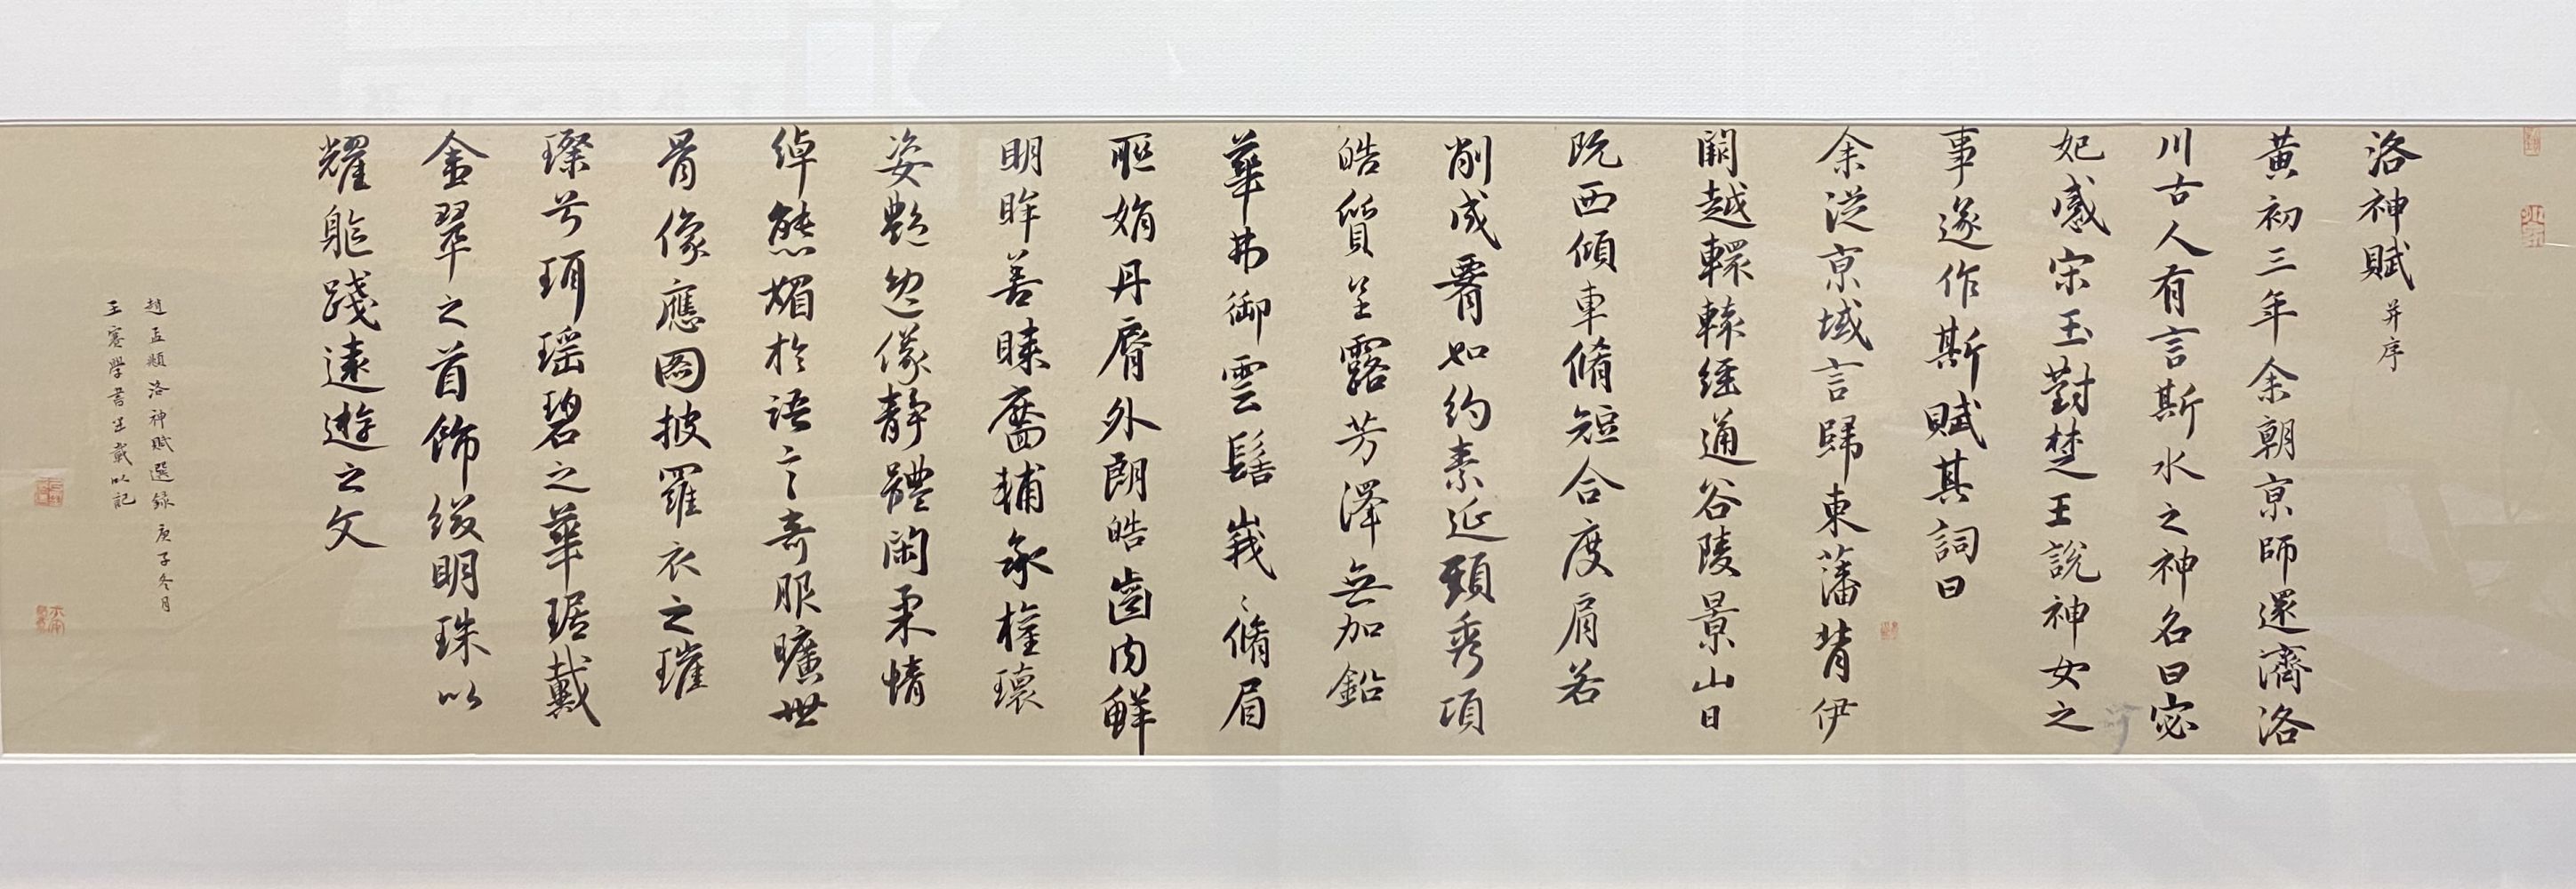 洛神賦并序
黃初三年余朝京師還濟洛
川古人有言斯水之神名曰宓
妃感宋玉對楚王說神女之
事遂作斯賦其詞曰
余從京域言歸東藩背伊
闕越轘轅經通谷陵景山日
既西傾車脩短合度肩若
削成䙴如約素延頸秀項
皓質呈露芳澤無加鉛
華弗御雲髻峩〻脩眉
聯娟丹脣外朗皓齒內鮮
明眸善睞靨輔承權瓌
姿艷逸儀靜體閑柔情
綽態媚於語言奇服曠世
骨像應圖披羅衣之璀
璨兮珥瑶碧之華琚戴
金翠之首飾綴明珠以
耀軀踐遠遊之文
趙孟頫洛神賦選錄庚子冬月
王賽學書生戴以記